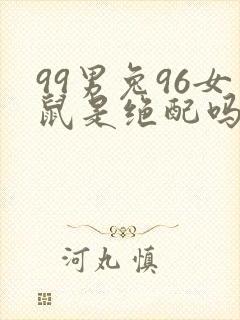 99男兔96女
鼠是绝配吗
河丸慎